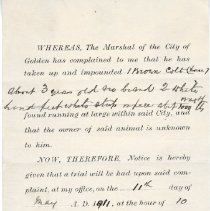 WHEREAS, The Marshal of the City of
Golden has complained to me that he has
taken up and impounded 1 Brown Colt (horse)
about 3 years old no brand 2 white
hind feet white strip
found running at large within said City, and
that the owner of said animal is unknown
to him.
NOW, THEREFORE, Notice is hereby
given that a trial will be had upon said com-
plaint, at my office, on the 11th day of
May A. D. 1911. at the hour of 10